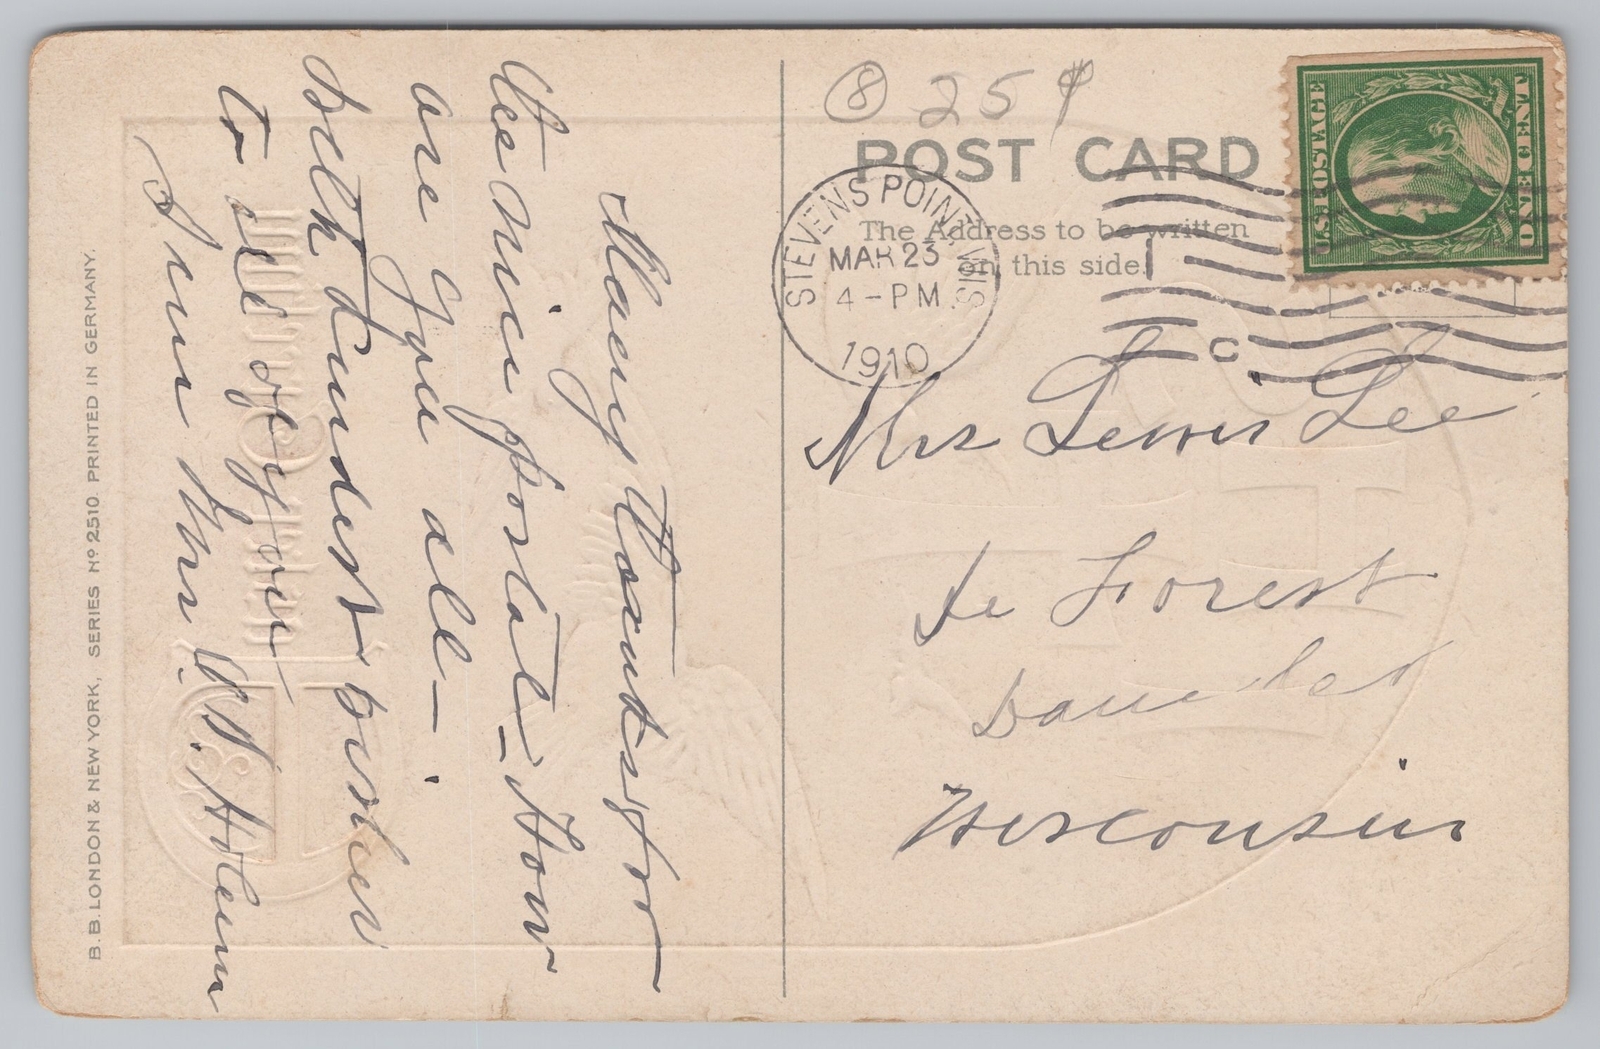 Many thanks for
the nice postal – How
are you all –
With kindest wishes
to all of you
Mrs.
B. B. LONDON & NEW YORK, SERIES Nº 2510. PRINTED IN GERMANY.
8 25¢
POST CARD
The Address to be written
on this side.
STEVENS POINT WIS
MAR 23
4-PM
1910
C
U.S. POSTAGE
ONE CENT
Mrs Lewis Lee
De Forest
Dane
Wisconsin